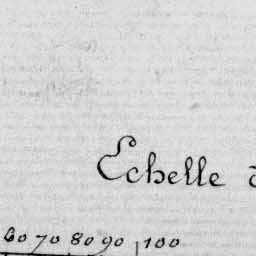 Echelle d
60 70 80 90 100